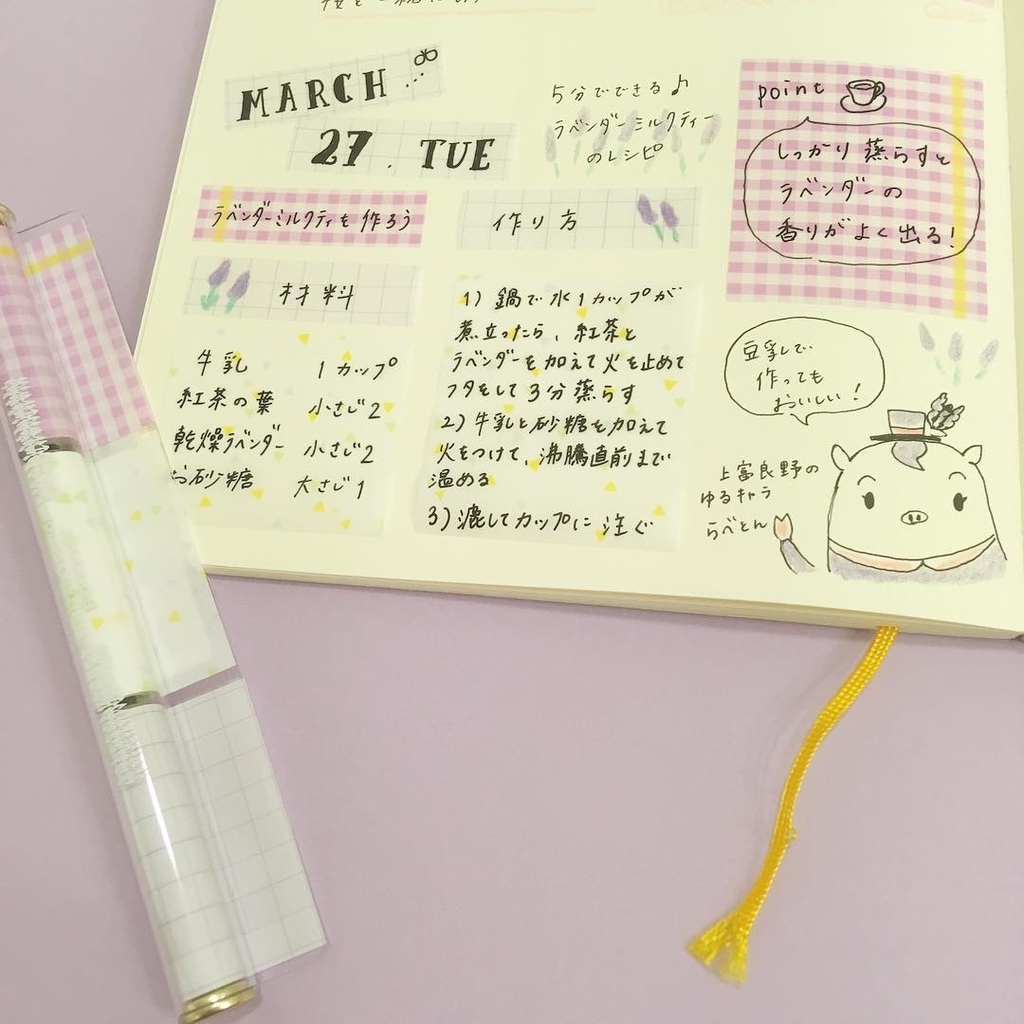 MARCH
27. TUE
5分でできる♪
ラベンダーミルクティー
のレシピ
ラベンダーミルクティを作ろう
材料
牛乳 1カップ
紅茶の葉 小さじ2
乾燥ラベンダー 小さじ2
お砂糖 大さじ1
作り方
1) 鍋で水1カップが
煮立ったら、紅茶と
ラベンダーを加えて火を止めて
フタをして3分蒸らす
2) 牛乳と砂糖を加えて
火をつけて、沸騰直前まで
温める
3) 漉してカップに注ぐ
point
しっかり蒸らすと
ラベンダーの
香りがよく出る!
豆乳で
作っても
おいしい!
上富良野の
ゆるキャラ
らべとん